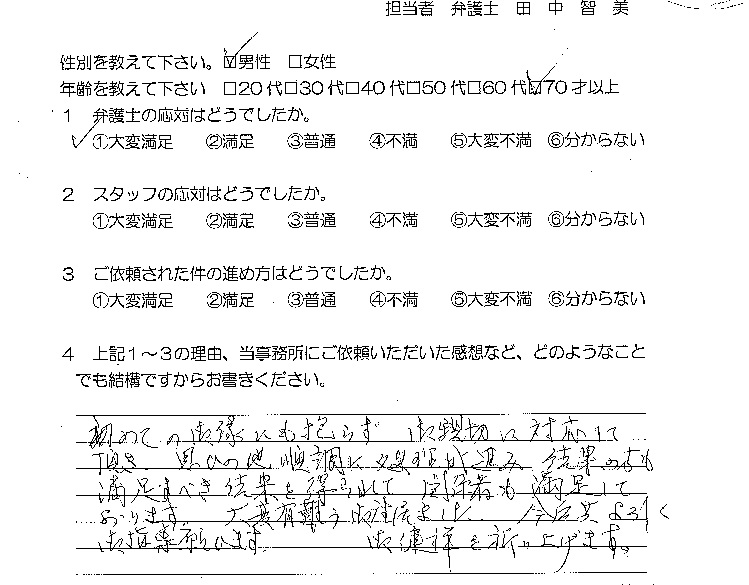 担当者 弁護士 田中智美
性別を教えて下さい。☑男性 □女性
年齢を教えて下さい □20代□30代□40代□50代□60代☑70才以上
1 弁護士の応対はどうでしたか。
✓①大変満足 ②満足 ③普通 ④不満 ⑤大変不満 ⑥分からない
2 スタッフの応対はどうでしたか。
①大変満足 ②満足 ③普通 ④不満 ⑤大変不満 ⑥分からない
3 ご依頼された件の進め方はどうでしたか。
①大変満足 ②満足 ③普通 ④不満 ⑤大変不満 ⑥分からない
4 上記1~3の理由、当事務所にご依頼いただいた感想など、どのようなこと
でも結構ですからお書きください。
初めての御縁にも拘らず 御親切に対応して
頂き、思ひの他順調に 進み 結果の方も
満足すべき結果を得られて 満足して
おります。 大変有難う御座ゐました。 今后共よろしく
御指導願ひます。 御健祥を祈り上げます。